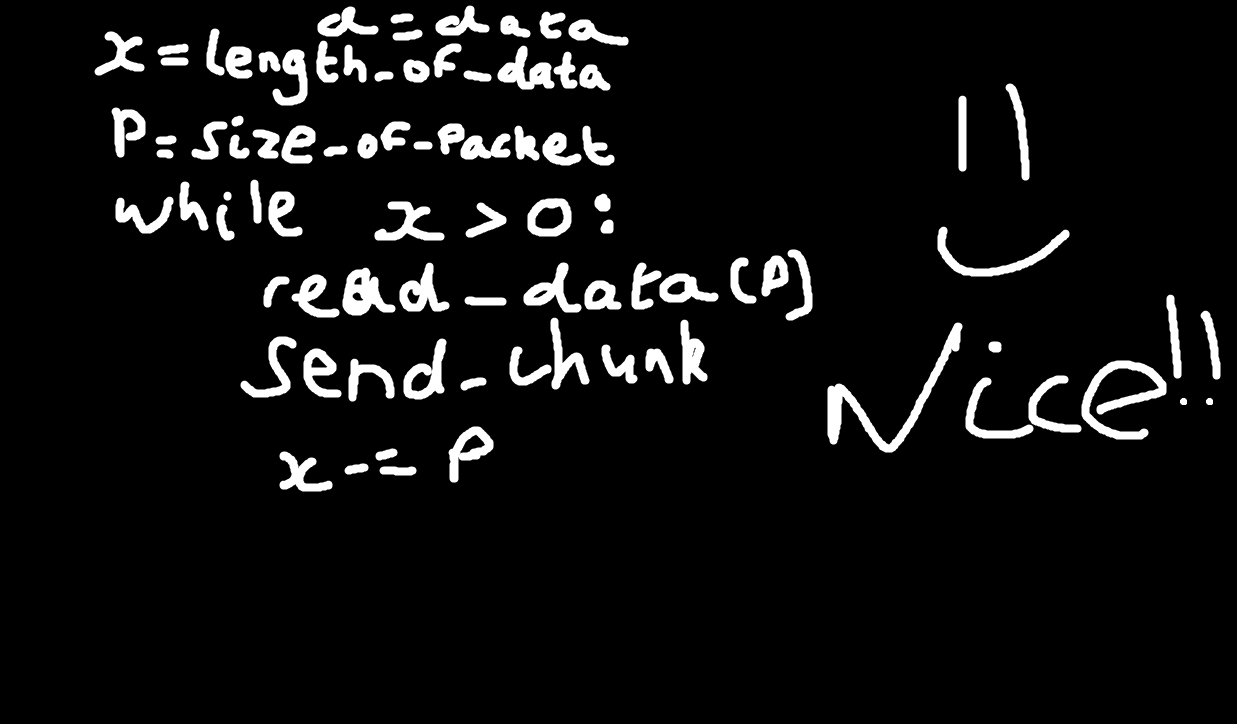 d = data
x = length_of_data
P = size_of_Packet
while x > 0 :
read_data(P)
send_chunk
x -= P
Nice!!